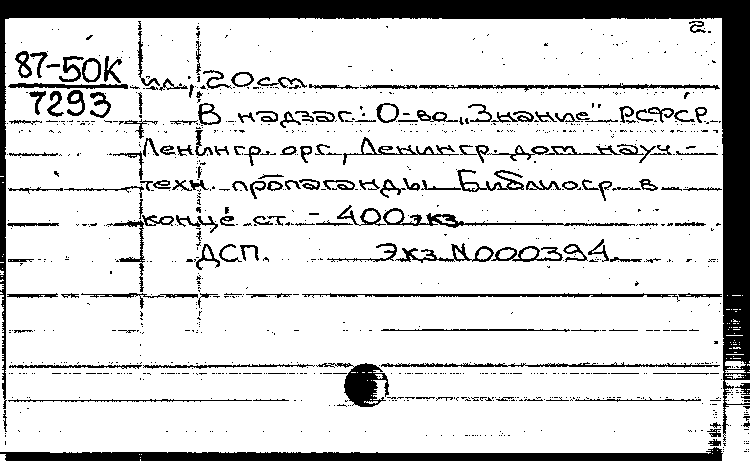 2.
87-50К
7293
ил.; 20 см.
В надзаг.: О-во „Знание" РСФСР.
Ленингр. орг., Ленингр. дом науч.-
техн. пропаганды. Библиогр. в
конце ст. - 400 экз.
ДСП. Экз. N000394.